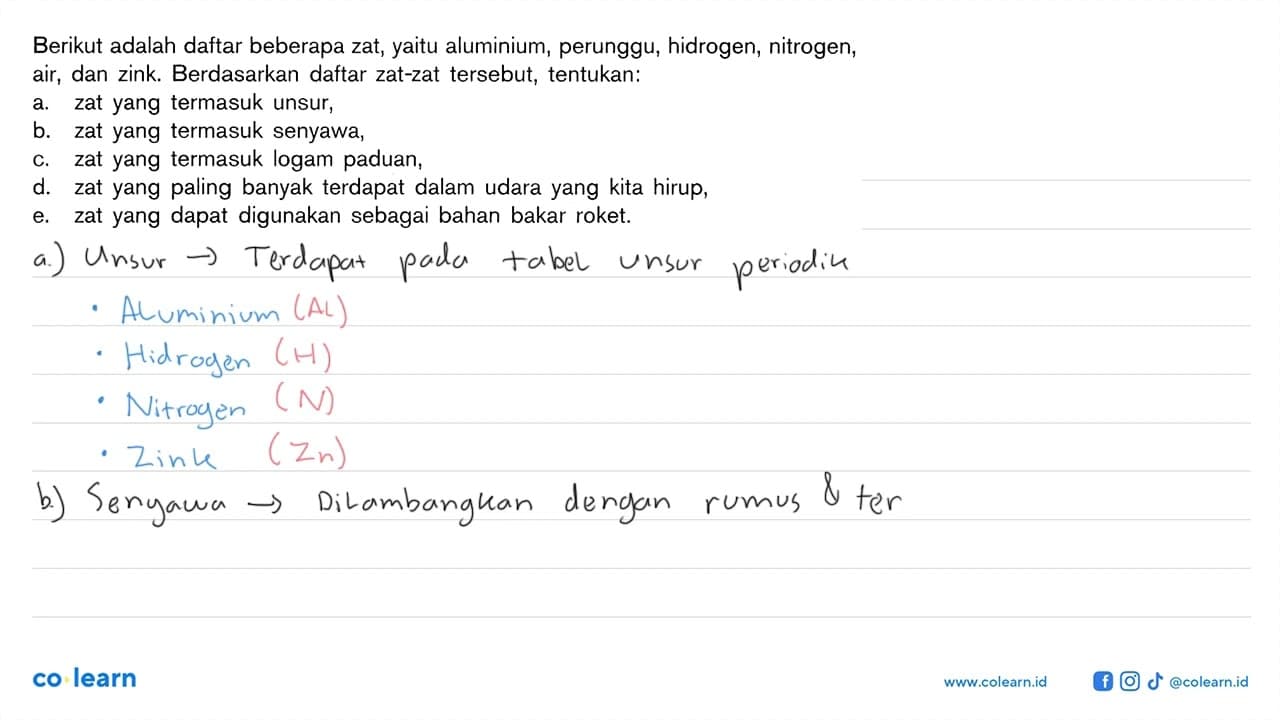 Berikut adalah daftar beberapa zat, yaitu aluminium, perunggu, hidrogen, nitrogen,
air, dan zink. Berdasarkan daftar zat-zat tersebut, tentukan:
a. zat yang termasuk unsur,
b. zat yang termasuk senyawa,
c. zat yang termasuk logam paduan,
d. zat yang paling banyak terdapat dalam udara yang kita hirup,
e. zat yang dapat digunakan sebagai bahan bakar roket.
a.) Unsur → Terdapat pada tabel unsur periodik
• Aluminium (Al)
• Hidrogen (H)
• Nitrogen (N)
• Zink (Zn)
b.) Senyawa → Dilambangkan dengan rumus & ter
co learn
www.colearn.id
@colearn.id